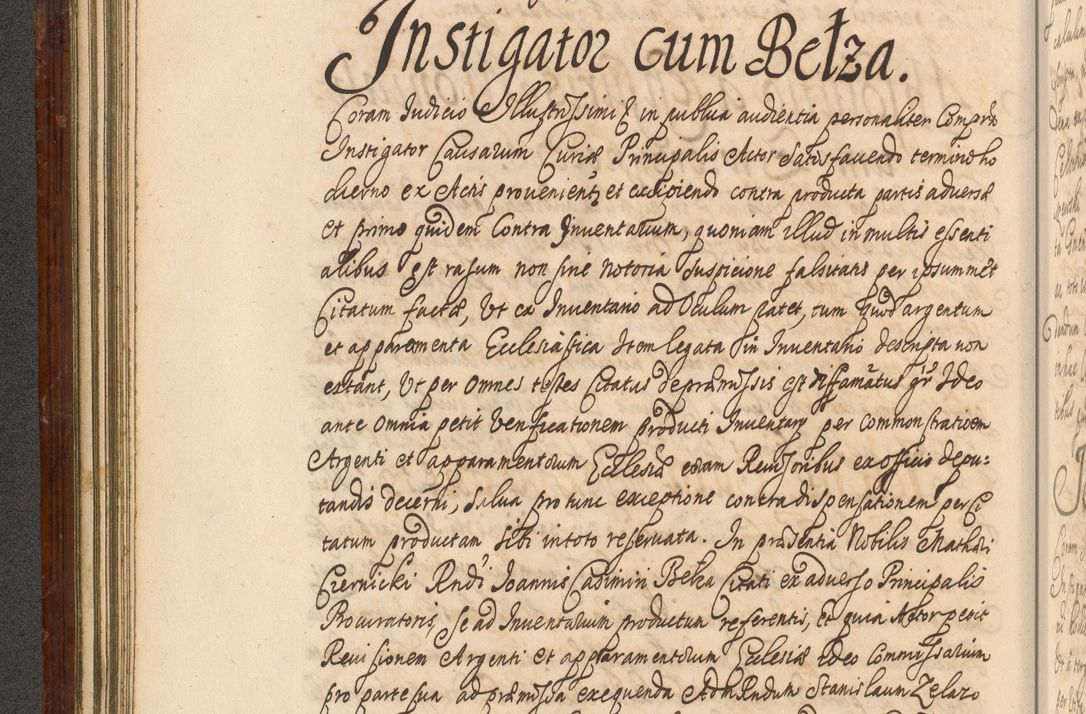 Instigator cum Bełza.
Coram Judicio Illustrissimi & in publica audientia personaliter Comprns
Instigator Causarum Curiæ Principalis Actor Satisfaciendo termino ho
dierno ex Actis provenienti et excipiendo contra producta partis adversæ
et primo quidem Contra Inventarium, quoniam illud in multis essenti
alibus est rasum non sine notoria suspicione falsitatis per ipsummet
Citatum factæ, Ut ex Inventario ad Oculum patet, tum quod argentum
et apparamenta Ecclesiastica Item legata in Inventario descripta non
extant, Ut per omnes testes Citatus de præmissis est diffamatus grs Ideo
ante omnia petit Verificationem producti Inventarij per commonstrationem
Argenti et apparamentorum Ecclesiæ coram Revisoribus ex officio depu-
tandis decerni, Salva pro tunc exceptione contra dispensationem per Ci
tatum productam Sibi in toto reservata. In præsentia Nobilis Mathæi
Czernicki Rndi Joannis Casimiri Bełza Citati ex adverso Principalis
Procuratoris, se ad Inventarium productum referentis, Et quia Actor petit
Revisionem Argenti et apparamentorum Ecclesiæ ideo Commissarium
pro parte sua ad præmissa exequenda AdmRndum Stanislaum Zelazo